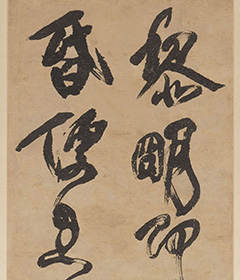 黎明即
昏便息